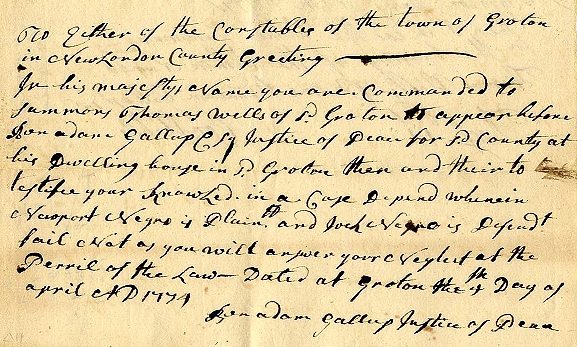 To Either of the Constables of the town of Groton
in New London County Greeting
In his majestys Name you are Commanded to
Summons Thomas Wells of sd Groton to appear before
Benadam Gallup Esq Justice of Peace for sd County at
his Dwelling house in sd Groton then and their to
testifie your Knowled. in a Case Depend wherein
Newport Negro is Plaintt and Jock Negro is Defendt
fail Not as you will answer your Neglect at the
Perril of the Law Dated at Groton the 4th Day of
april AD 1774
Benadam Gallup Justice of Peace